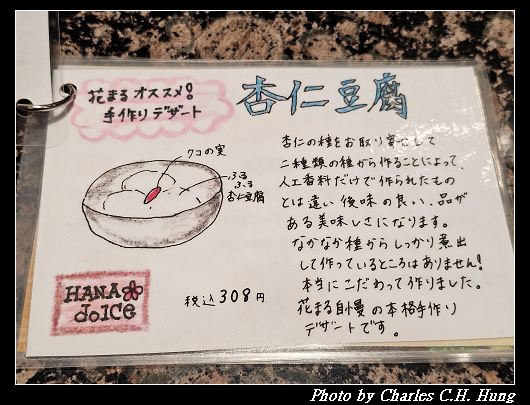 花まるオススメ!
手作りデザート
杏仁豆腐
クコの実
ふる
ふる
杏仁豆腐
杏仁の種をお取り寄せして
二種類の種から作ることによって、
人工香料だけで作られたもの
とは違い後味の良い、品が
ある美味しさになります。
なかなか種からしっかり煮出
して作っているところはありません!
本当にこだわって作りました。
花まる自慢の本格手作り
デザートです。
HANA
dolce
税込308円
Photo by Charles C.H. Hung